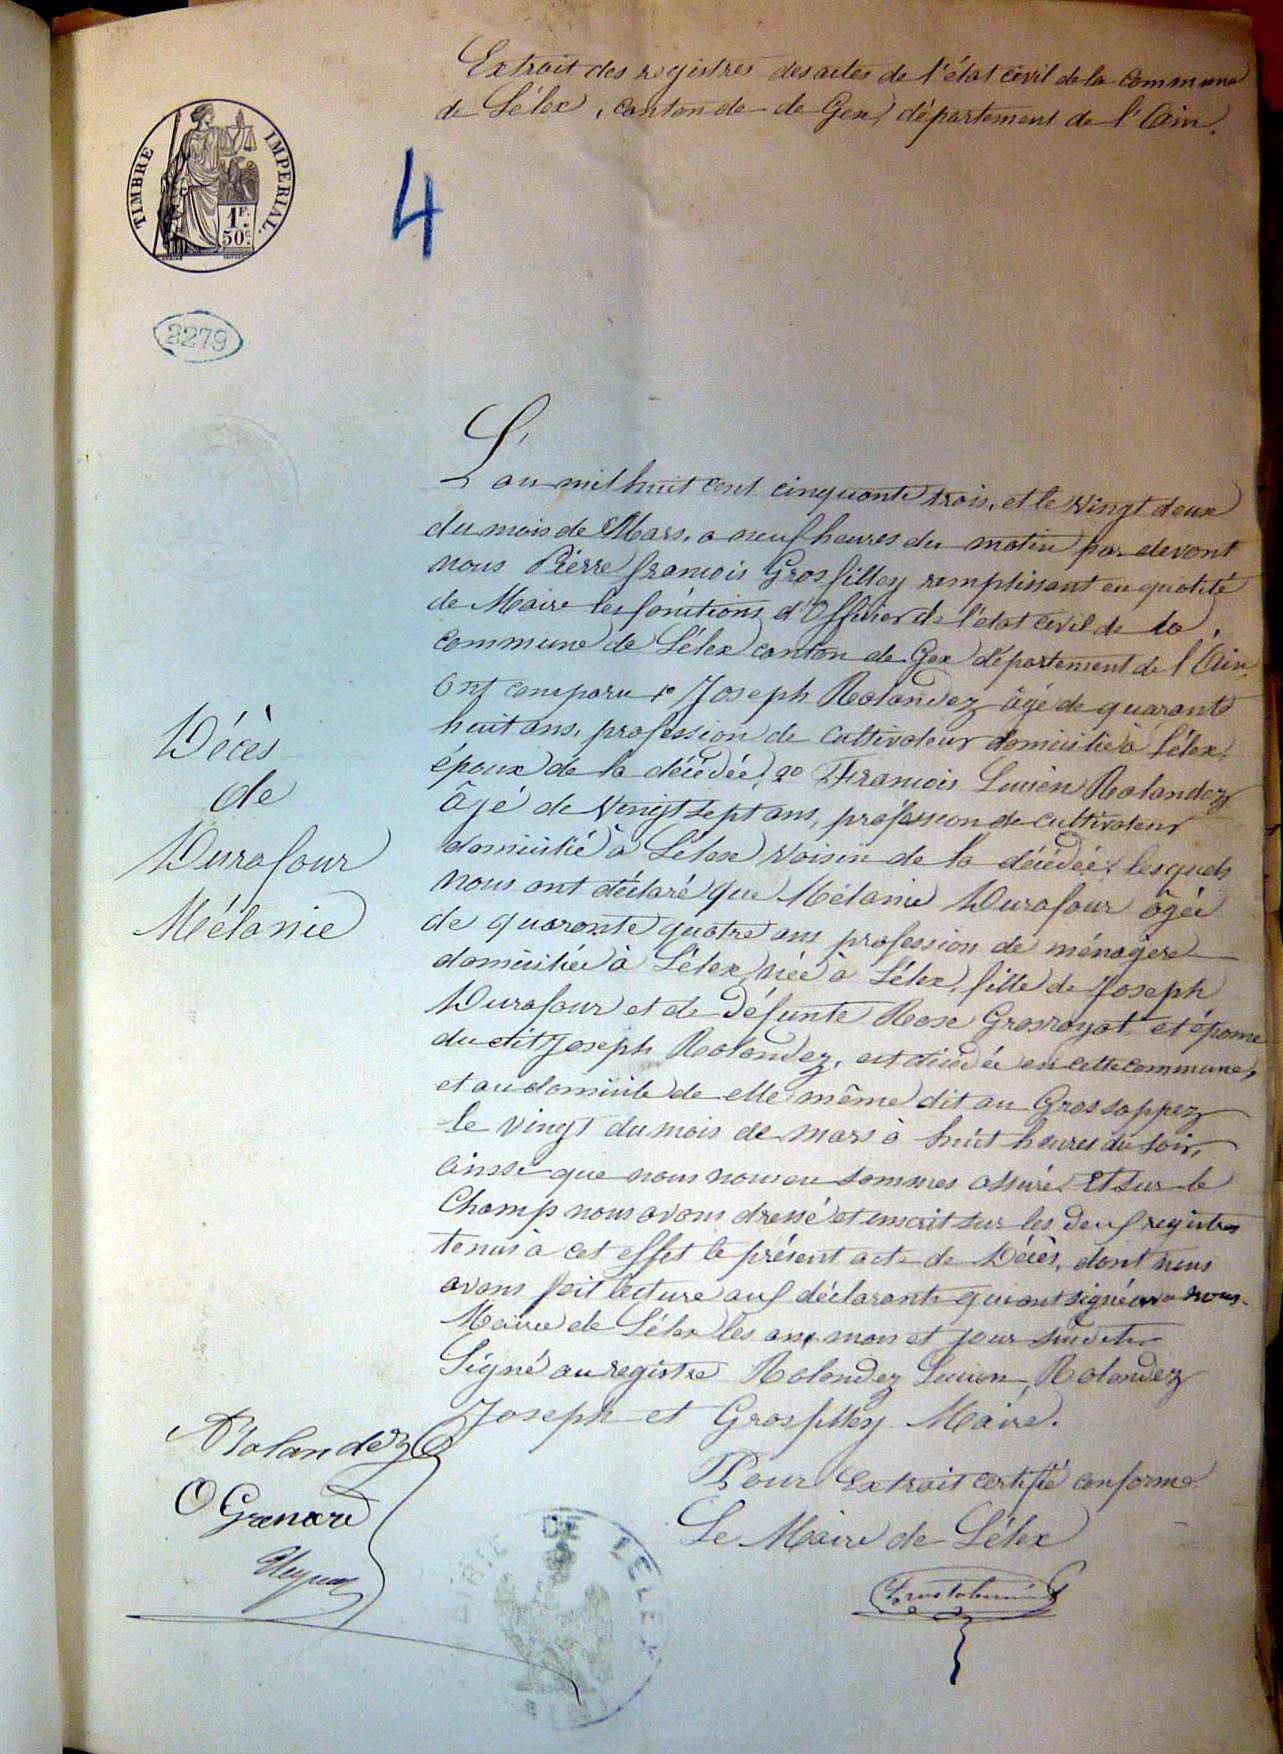 Extrait des registres des actes de l'état civil de la commune
de Lélex, canton de de Gex, département de l'Ain.
TIMBRE IMPERIAL.
1F. 50c.
4
2279
L'an mil huit cent cinquante trois, et le vingt deux
du mois de Mars, a neuf heures du matin par devant
nous Pierre francois Grosfilley remplissant en qualité
de Maire les fonctions d'Officier de l'état civil de la
commune de Lélex canton de Gex département de l'Ain,
Ont comparu 1o Joseph Rolandez âgé de quarante
huit ans, profession de cultivateur domicilié à Lélex,
époux de la décédée, 2o Francois Lucien Rolandez
âgé de vingt sept ans, profession de cultivateur
domicilié à Lélex voisin de la décédée, lesquels
nous ont déclaré que Mélanie Durafour âgée
de quarante quatre ans profession de ménagère
domiciliée à Lélex, née à Lélex, fille de Joseph
Durafour et de défunte Rose Grosroyat et épouse
du dit Joseph Rolandez, est décédée en cette commune,
et au domicile de elle même dit au Gros sappez
le vingt du mois de mars à huit heures du soir,
ainsi que nous nous en sommes assuré. Et sur le
Champ nous avons dressé et inscrit sur les deux registres
tenus à cet effet le présent acte de Décès, dont nous
avons fait lecture aux déclarants qui ont signé avec nous.
Maire de Lélex les an, mois et jour susdits
Signé au registre Rolandez Lucien, Rolandez
Joseph et Grosfilley Maire.
Décès
de
Durafour
Mélanie
Pour Extrait certifié conforme
Le Maire de Lélex
Rolandez
Grenard
MAIRIE DE LELEX